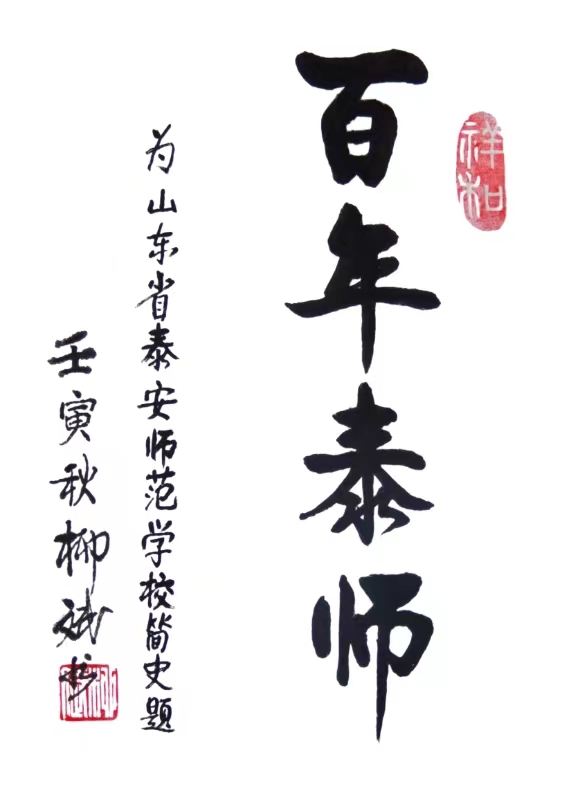 祥和
百年泰师
为山东省泰安师范学校简史题
壬寅秋柳斌